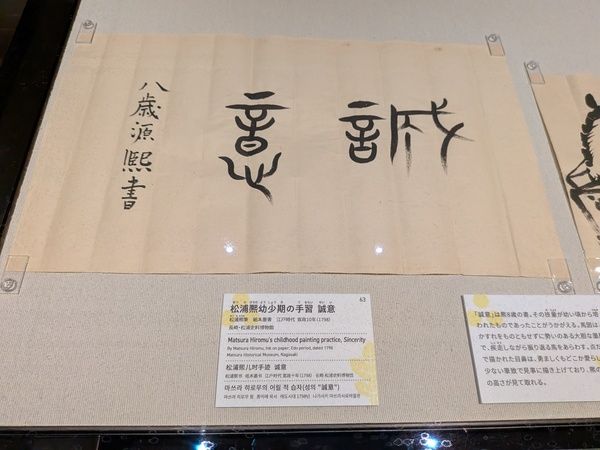 誠意
八歳源熈書
63
松浦熈幼少期の手習 誠意
松浦熈筆 紙本墨書 江戸時代 寛政10年(1798)
長崎・松浦史料博物館
Matsura Hiromu's childhood painting practice, Sincerity
By Matsura Hiromu, Ink on paper, Edo period, dated 1798
Matsura Historical Museum, Nagasaki
松浦熙儿时手迹 诚意
松浦熙书 纸本墨书 江户时代 宽政十年(1798) 长崎·松浦史料博物馆
마쓰라 히로무의 어릴 적 습자(성의 "誠意")
마쓰라 히로무 필 종이에 묵서 에도시대 1798년 나가사키 마쓰라사료박물관
「誠意」は熈8歳の書。その恩
われたものであったことがうかがえる。馬図は
かすれをものともせずに勢いのある大胆な
で、疾走しながら振り返る馬をあらわす。
で描かれた目鼻は、勇ましくもどこか愛らし
少ない筆致で見事に描き上げており、熈の
の高さが見て取れる。